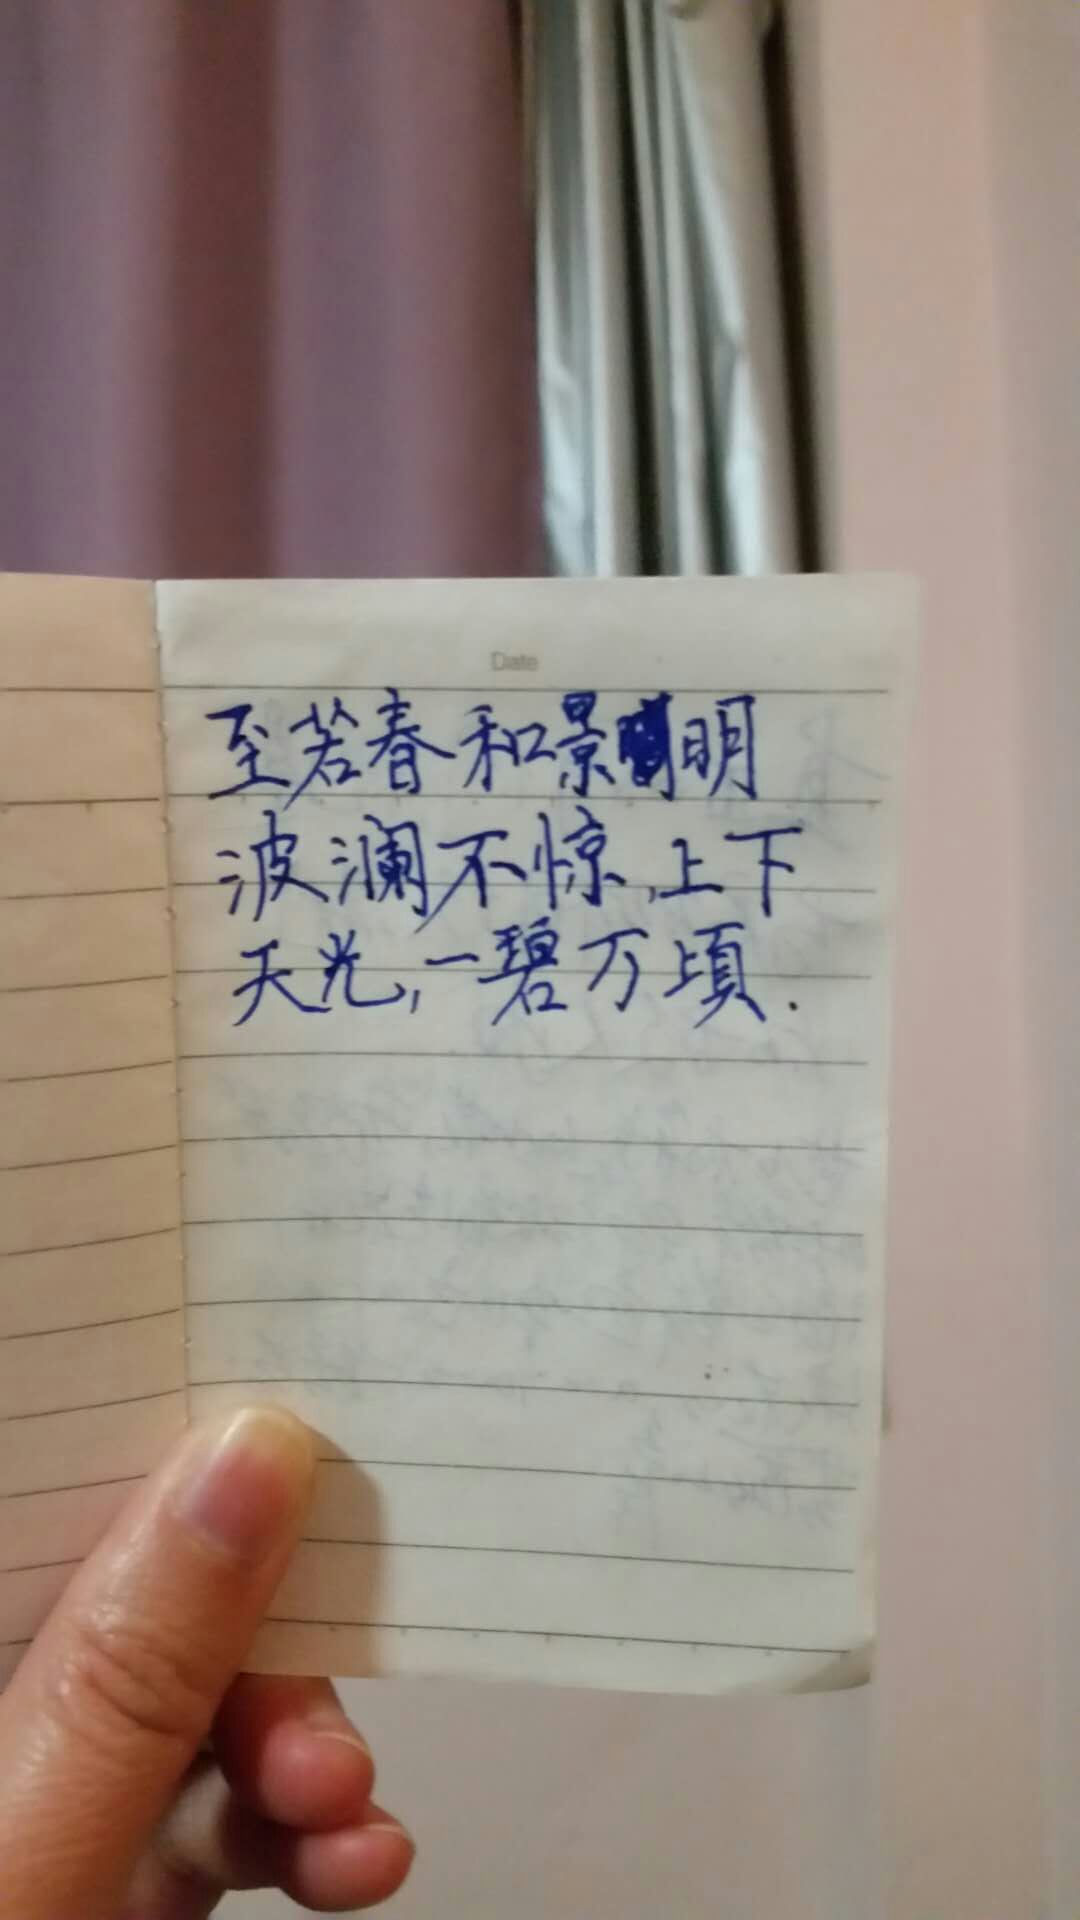 Date
至若春和景明
波澜不惊,上下
天光,一碧万頃.